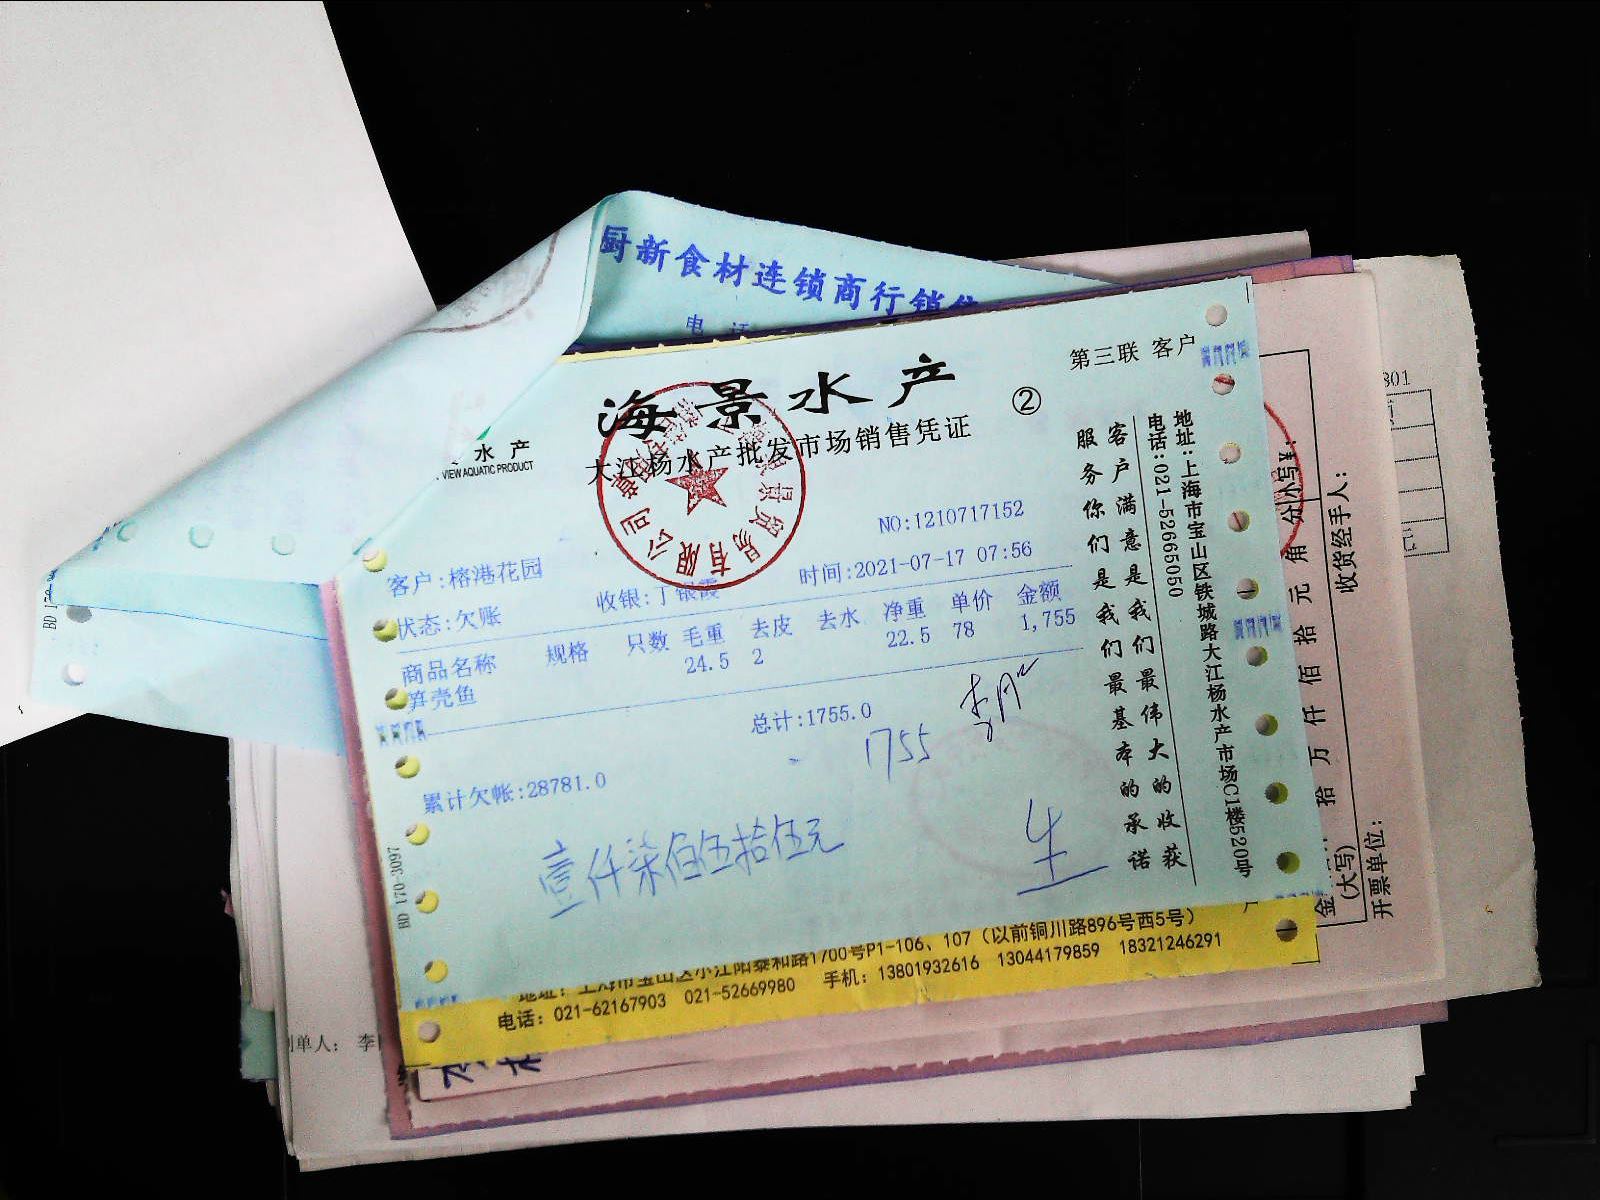 厨新食材连锁商行销
电 话
海景水产
②
第三联 客户
水产
VIEW AQUATIC PRODUCT
大江杨水产批发市场销售凭证
NO:1210717152
客户:榕港花园
时间:2021-07-17 07:56
状态:欠账
收银:丁银霞
商品名称 规格 只数 毛重 去皮 去水 净重 单价 金额
笋壳鱼 24.5 2 22.5 78 1,755
总计:1755.0
1755
累计欠帐:28781.0
壹仟柒佰伍拾伍元
客户满意是我们最伟大的收获
服务你们是我们最基本的承诺
地址:上海市宝山区铁城路大江杨水产市场C1楼520号
电话:021-52665050
BD 170-3097
BD 170
贸易有限公司
地址: 上海市宝山区小江阳泰和路1700号P1-106、107(以前铜川路896号西5号)
电话: 021-62167903 021-52669980 手机: 13801932616 13044179859 18321246291
拾万仟佰拾元角分
小写¥:
(大写)
收货经手人:
开票单位:
801
元
制单人: 李